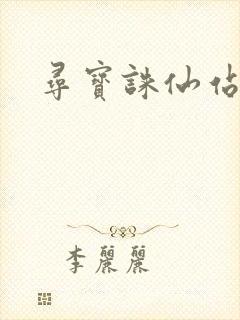 尋寶誅仙佔
李麗麗